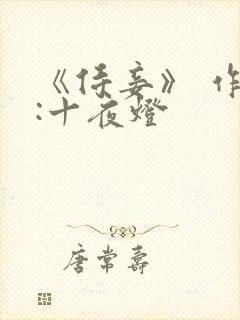 《侍妾》 作
:十夜燈
唐常壽